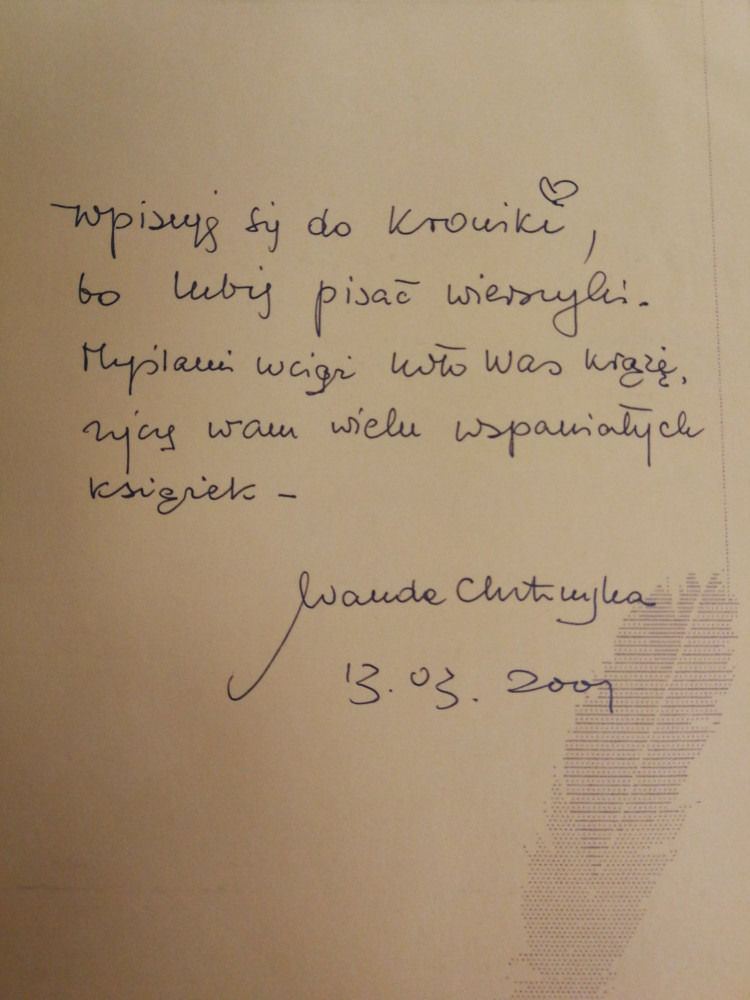 Wpisuję się do Kroniki,
bo lubię pisać wierszyki.
Myślami wciąż koło Was krążę,
życzę wam wielu wspaniałych
książek -
Wanda Chotomska
13.03.2001